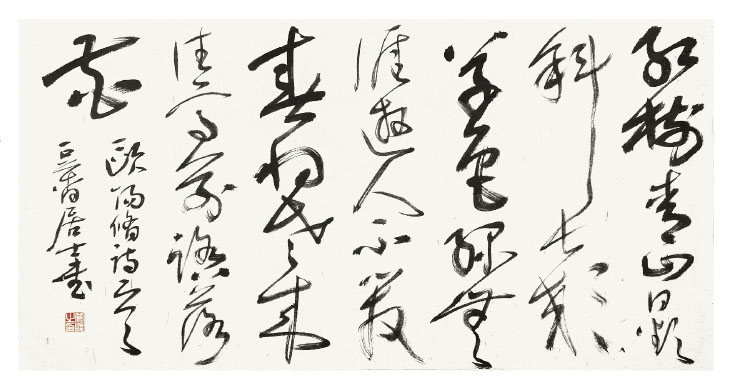 紅樹青山日欲
斜長郊
草色綠無
涯遊人不管
春將老來
往亭前踏落
花
歐陽脩詩
居士書